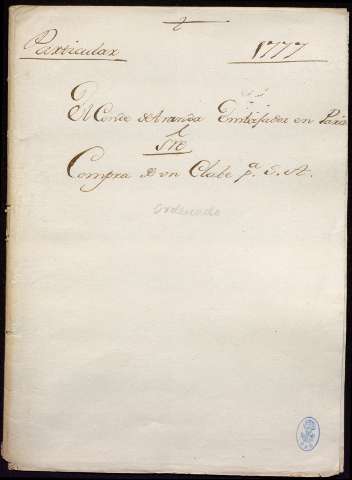 Particular
1777
El Conde de Aranda Embajador en Paris
Sre
Compra de un Clave pa. S. A.
ordenado